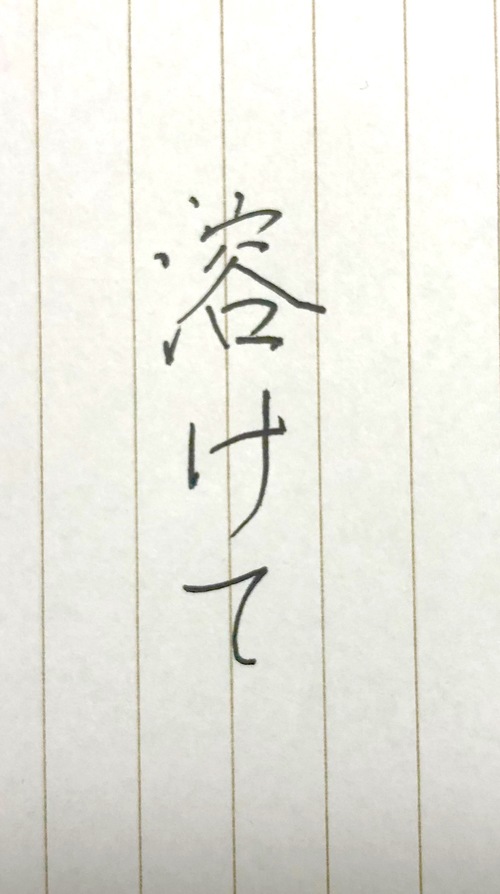 溶けて